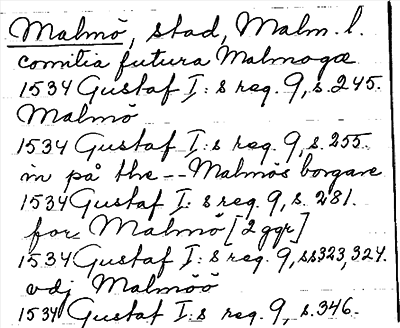 Malmö, stad, Malm. l.
comitia futura Malmogæ
1534 Gustaf I:s reg. 9, s. 245.
Malmö
1534 Gustaf I:s reg. 9, s. 255.
in på the -- Malmös borgare
1534 Gustaf I:s reg. 9, s. 281.
for Malmö [2 ggr]
1534 Gustaf I:s reg. 9, ss 323, 324.
vdj Malmöö
1534 Gustaf I:s reg. 9, s. 346.